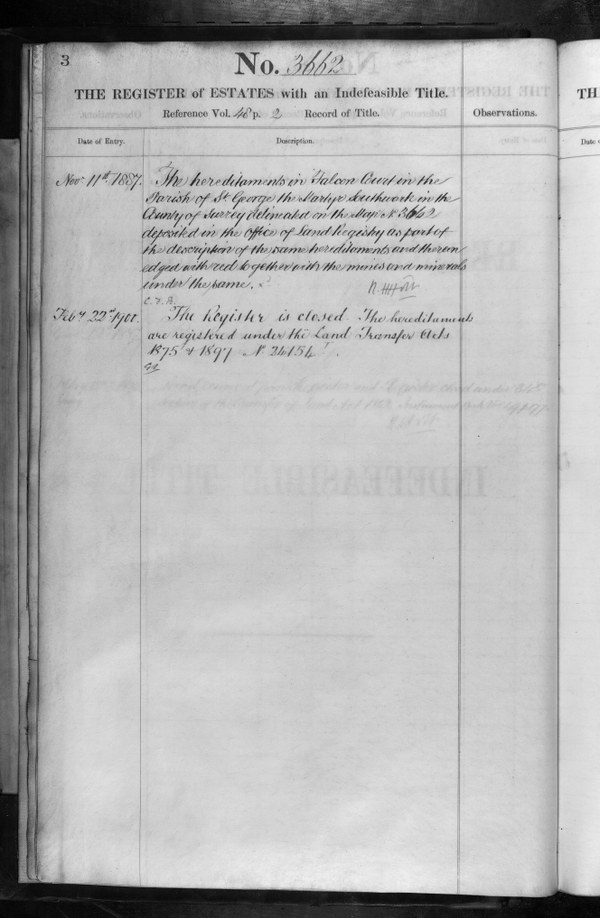 3
No. 3662
THE REGISTER of ESTATES with an Indefeasible Title.
Reference Vol. 48 p. 2 Record of Title.
Observations.
Date of Entry.
Description.
Nov 11th 1887.
The hereditaments in Falcon Court in the
Parish of St. George the Martyr Southwark in the
County of Surrey delineated on the Map No 3662
deposited in the Office of Land Registry as part of
the description of the same hereditaments and thereon
edged with red together with the mines and minerals
under the same.
Feby 22nd 1900.
The Register is closed The hereditaments
are registered under the Land Transfer Acts
1875 & 1897 No 24154
TH
Date